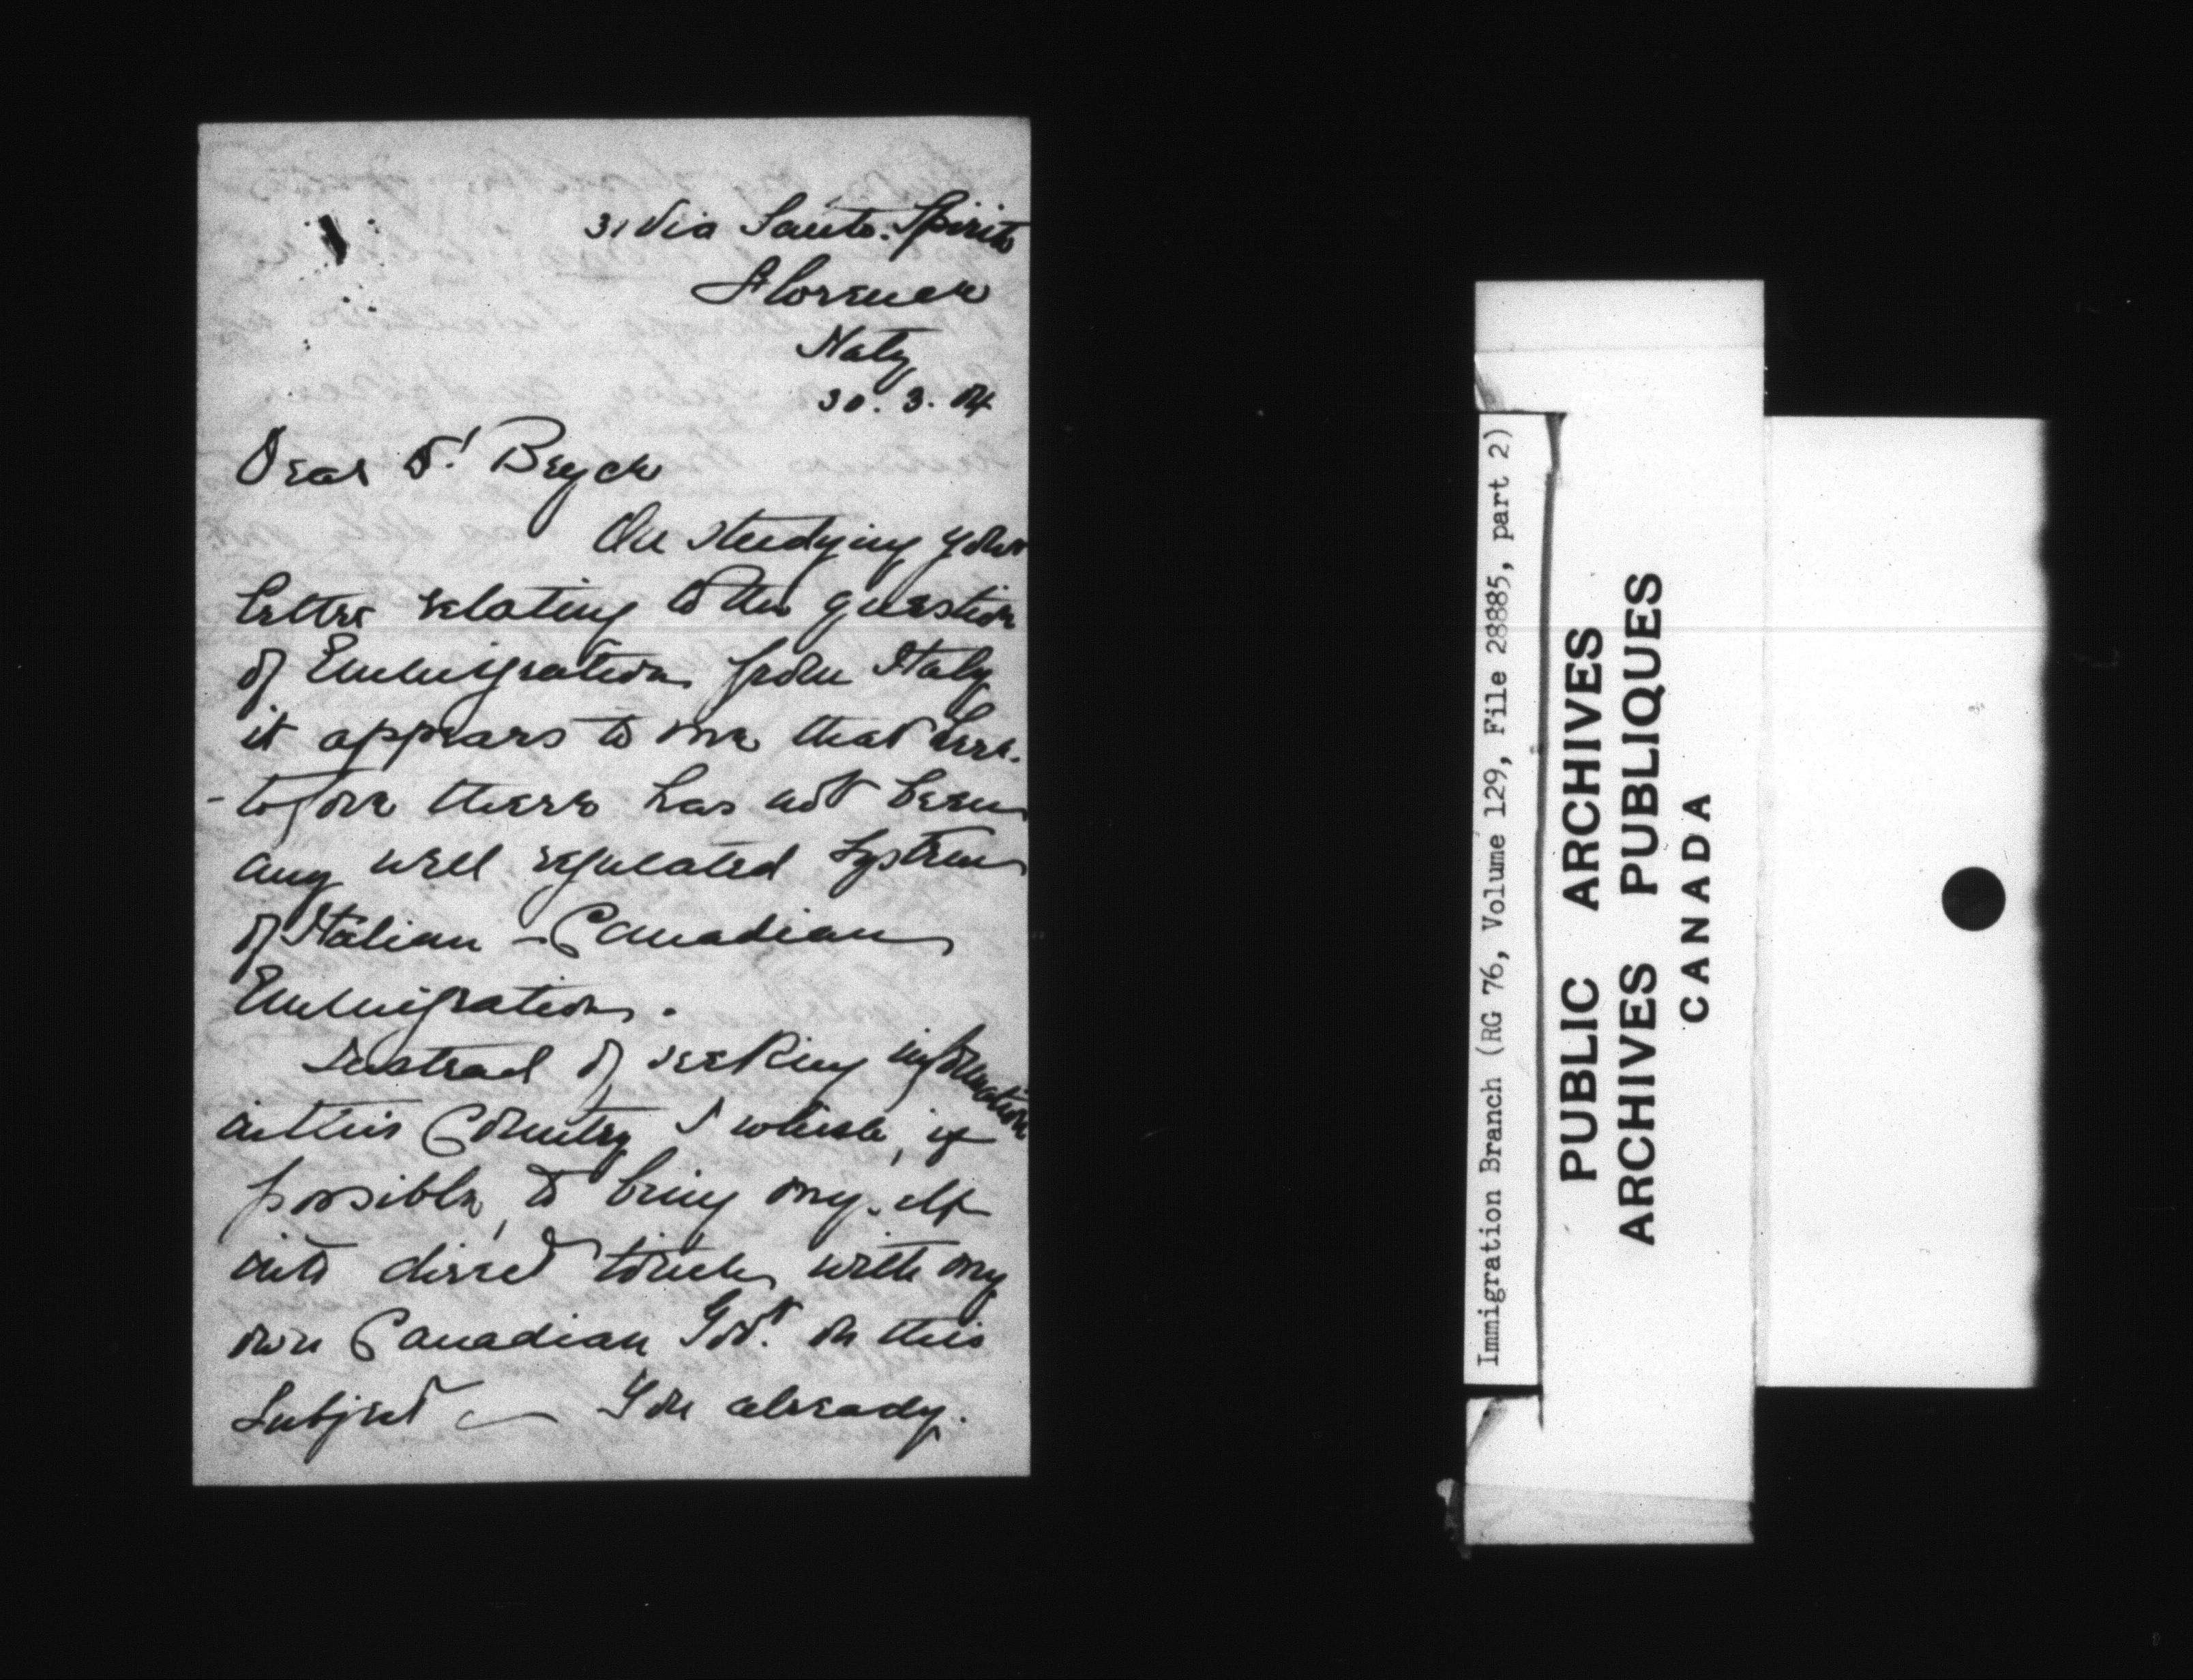 31 Via Santo. Spirito
Florence
Italy
30. 3. 04
Dear Dr Bryce
On studying your
letter relating to the question
of Emmigration from Italy
it appears to me that here-
-tofore there has not been
any well regulated system
of Italian - Canadian
Emmigration.
Instead of seeking information
in this Country I wish, if
possible, to bring myself
into direct touch with my
own Canadian Govt. on this
Subject — You already.
Immigration Branch (RG 76, Volume 129, File 28885, part 2)
PUBLIC ARCHIVES
ARCHIVES PUBLIQUES
CANADA